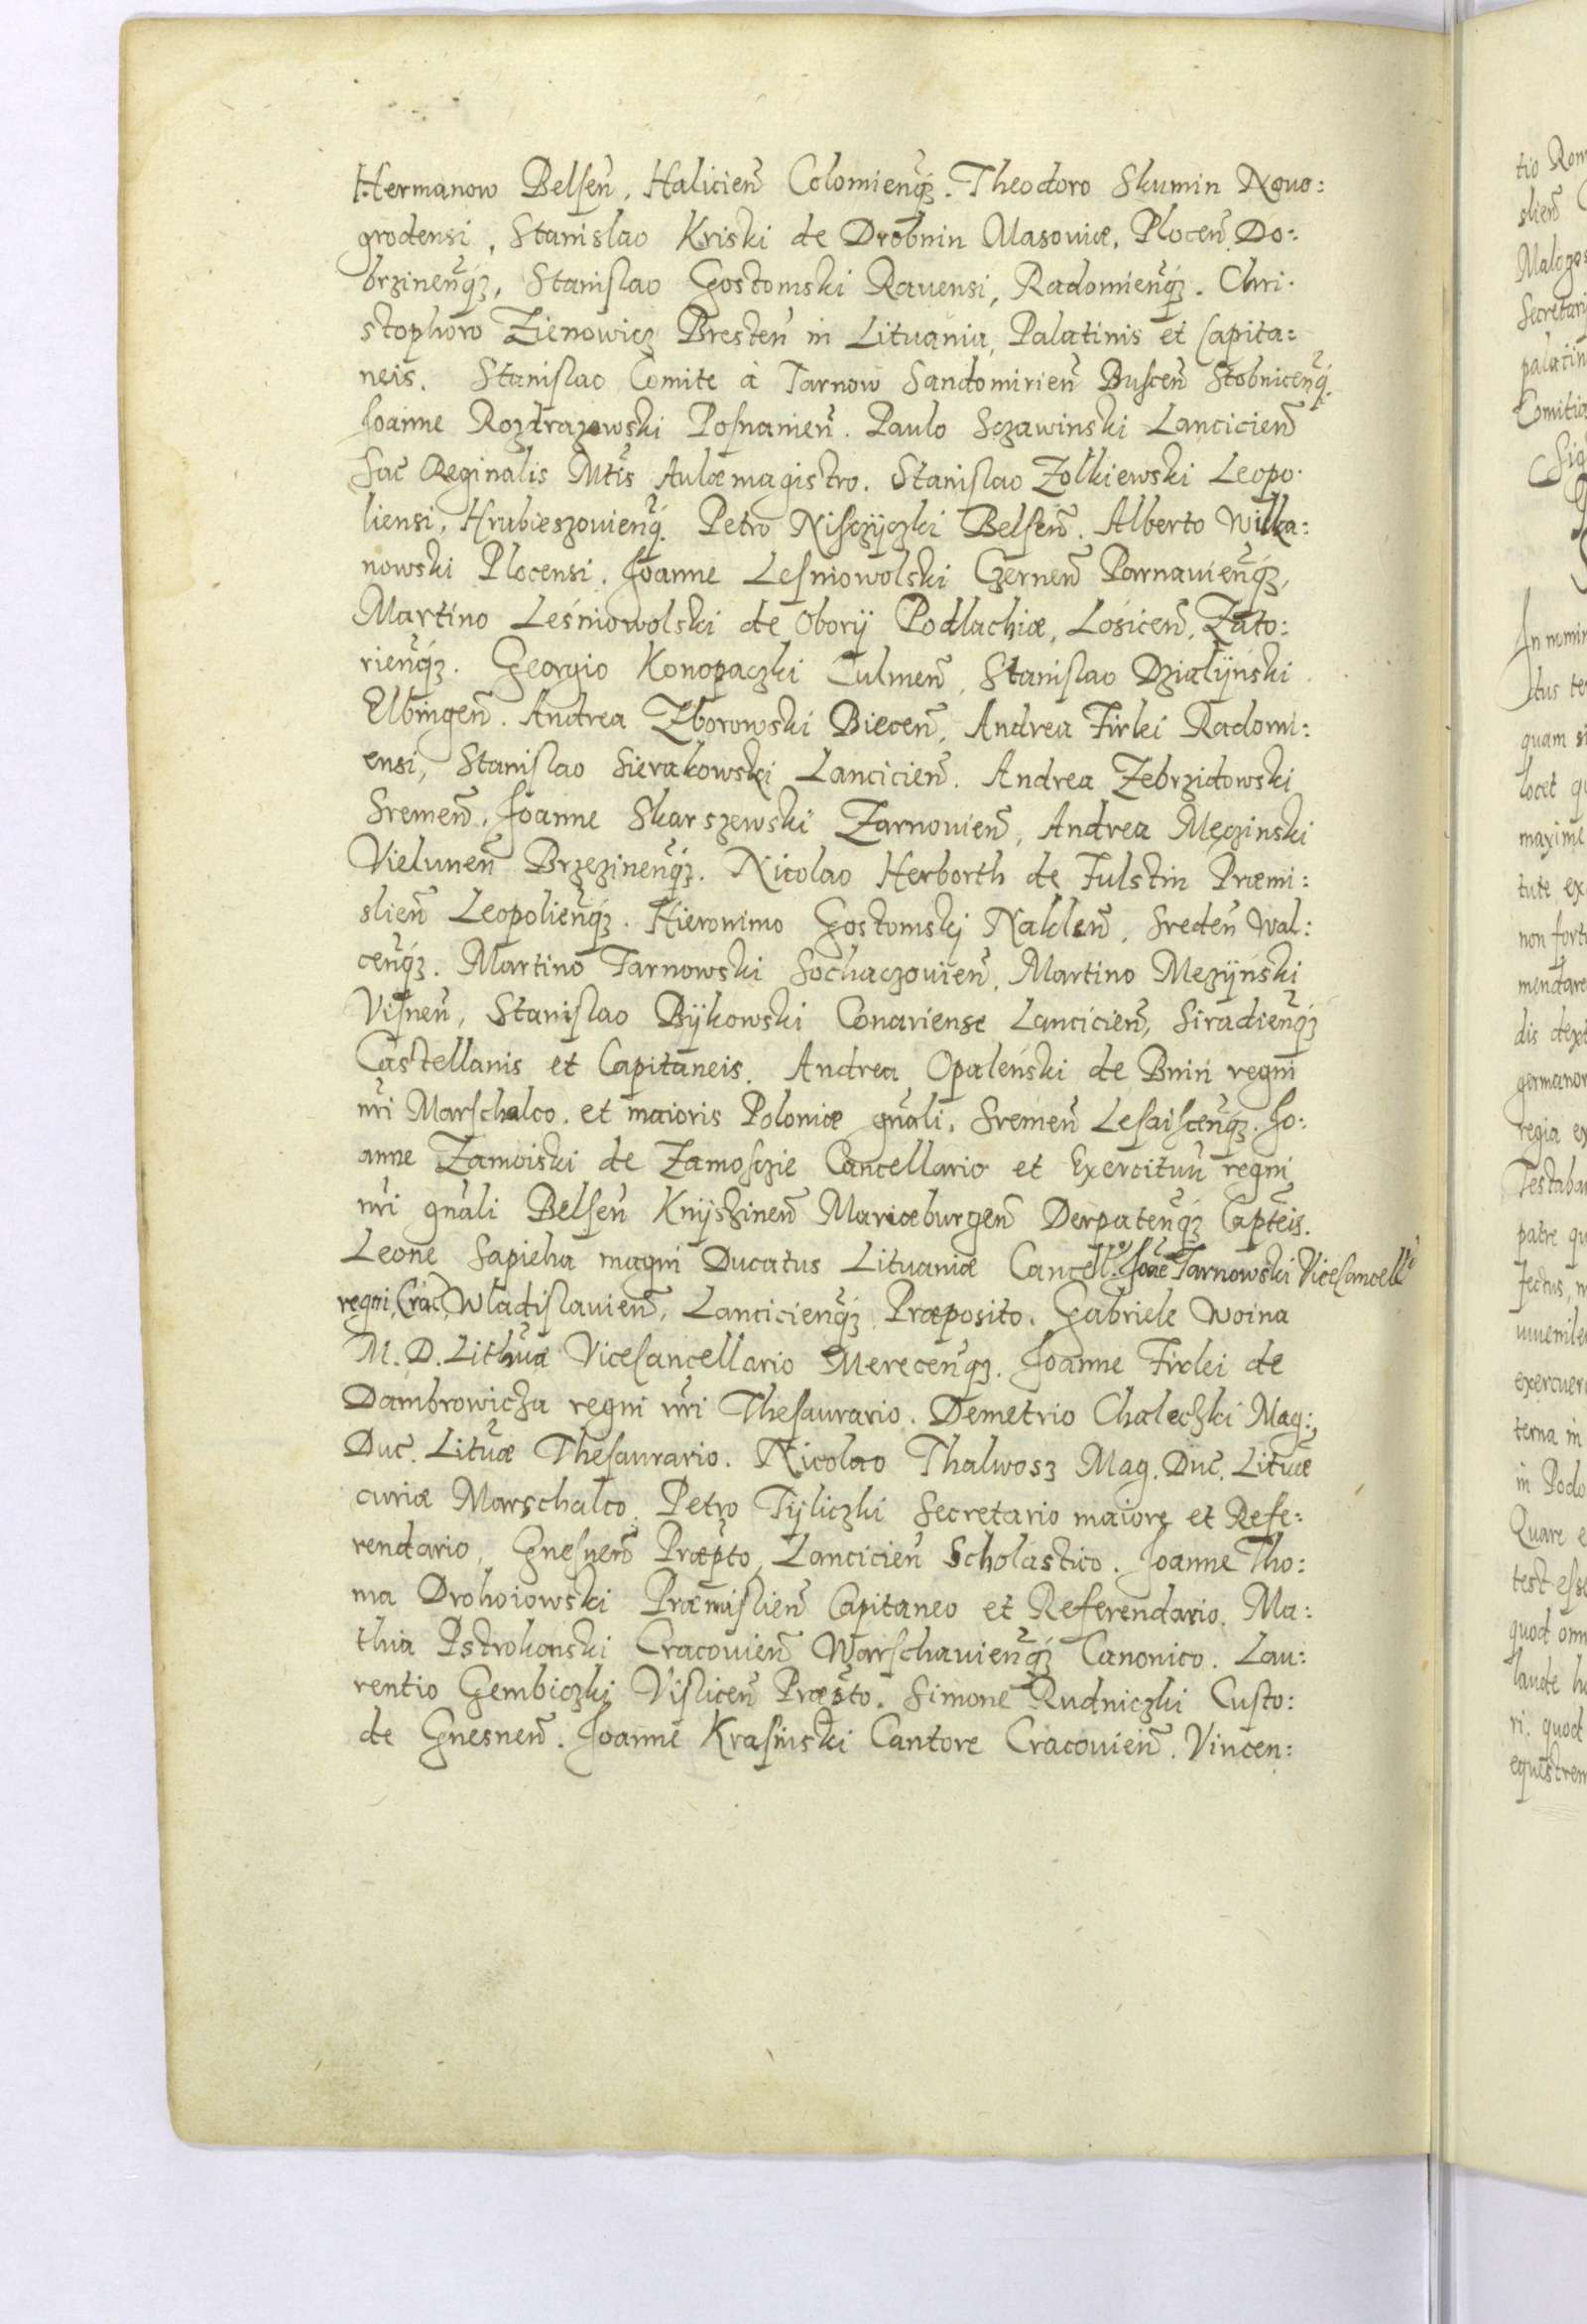 Hermanow Belsen̄, Halicien̄ Colomien̄q́ꝫ. Theodoro Skumin Nouo:
grodensi, Stanislao Kriski de Drobnin Masouiæ, Plocen̄ Do:
brzinen̄q́ꝫ, Stanislao Gostomski Rauensi, Radomien̄q́ꝫ. Chri.
stophoro Zienowicz Bresten̄ in Lituania, Palatinis et Capita:
neis. Stanislao Comite à Tarnow Sandomirien̄ Buscen̄ Stobnicen̄q́.
Joanne Rozdrazowski Posnanien̄. Paulo Sczawinski Lancicien̄
Sac̄ Reginalis Mt̄is Aulæmagistro. Stanislao Zolkiewski Leopo.
liensi, Hrubieszouien̄q́. Petro Nisczÿczki Belsen̄. Alberto Wilka:
nowski Plocensi. Joanne Lesniowolski Czernen̄ Parnauien̄q́ꝫ,
Martino Leśniowolski de Oborÿ Podlachiæ, Lośicen̄, Zato:
rien̄q́ꝫ. Georgio Konopaczki Culmen̄, Stanislao Dzialÿnski
Elbingen̄. Andrea Zborowski Biecen̄, Andrea Firlei Radomi:
ensi, Stanislao Sierakowski Lancicien̄. Andrea Zebrzidowski
Sremen̄. Joanne Skarszewski Zarnouien̄, Andrea Męczinski
Vielunen̄ Brzezinen̄q́ꝫ. Nicolao Herborth de Fulstin Præmi:
slien̄ Leopolien̄q́ꝫ. Hieronimo Gostomskj Naklen̄, Sreden̄ Wal:
cen̄q́ꝫ. Martino Tarnowski Sochaczouien̄, Martino Mezÿnski
Visnen̄, Stanislao Bÿkowski Conariense Lancicien̄, Siradien̄q́ꝫ
Castellanis et Capitaneis. Andrea Opaleński de Bnin regni
nr̄i Marschalco. et maioris Poloniæ gn̄ali, Sremen̄ Lesaiscen̄q́ꝫ. Jo:
anne Zamoiski de Zamosczie Cancellario et Exercituū regni
nr̄i gn̄ali Belsen̄ Knÿszinen̄ Mariæburgen̄ Derpaten̄q́ꝫ Capt̄eis.
Leone Sapieha magni Ducatus Lituaniæ Cancell.ʳⁱᵒ Joāe Tarnowski Vicesancellʳⁱᵒ
regni, Crac̄, Wladislauien̄, Lancicien̄q́ꝫ, Præposito. Gabriele Woina
M. D. Lithūæ Vicesancellario Merecen̄qꝫ. Joanne Firlei de
Dambrowicza regni nr̄i Thesaurario. Demetrio Chaleczki Mag:,
Duc̄. Litūæ Thesaurario. Nicolao Thalwosz Mag. Duc̄. Litūæ
curiæ Marschalco. Petro Tÿliczki Secretario maiore et Refe:
rendario, Gnesnen̄ Præp̄to, Lancicien̄ Scholastico. Joanne Tho:
ma Drohoiowski Præmislien̄ Capitaneo et Referendario. Ma:
thia Pstrokonski Cracouien̄ Warschauien̄q́ꝫ Canonico. Lau:
rentio Gembiczkj Vislicen̄ Præp̄to. Simone Rudniczki Custo:
de Gnesnen̄. Joanne Krasinski Cantore Cracouien̄. Vincen: